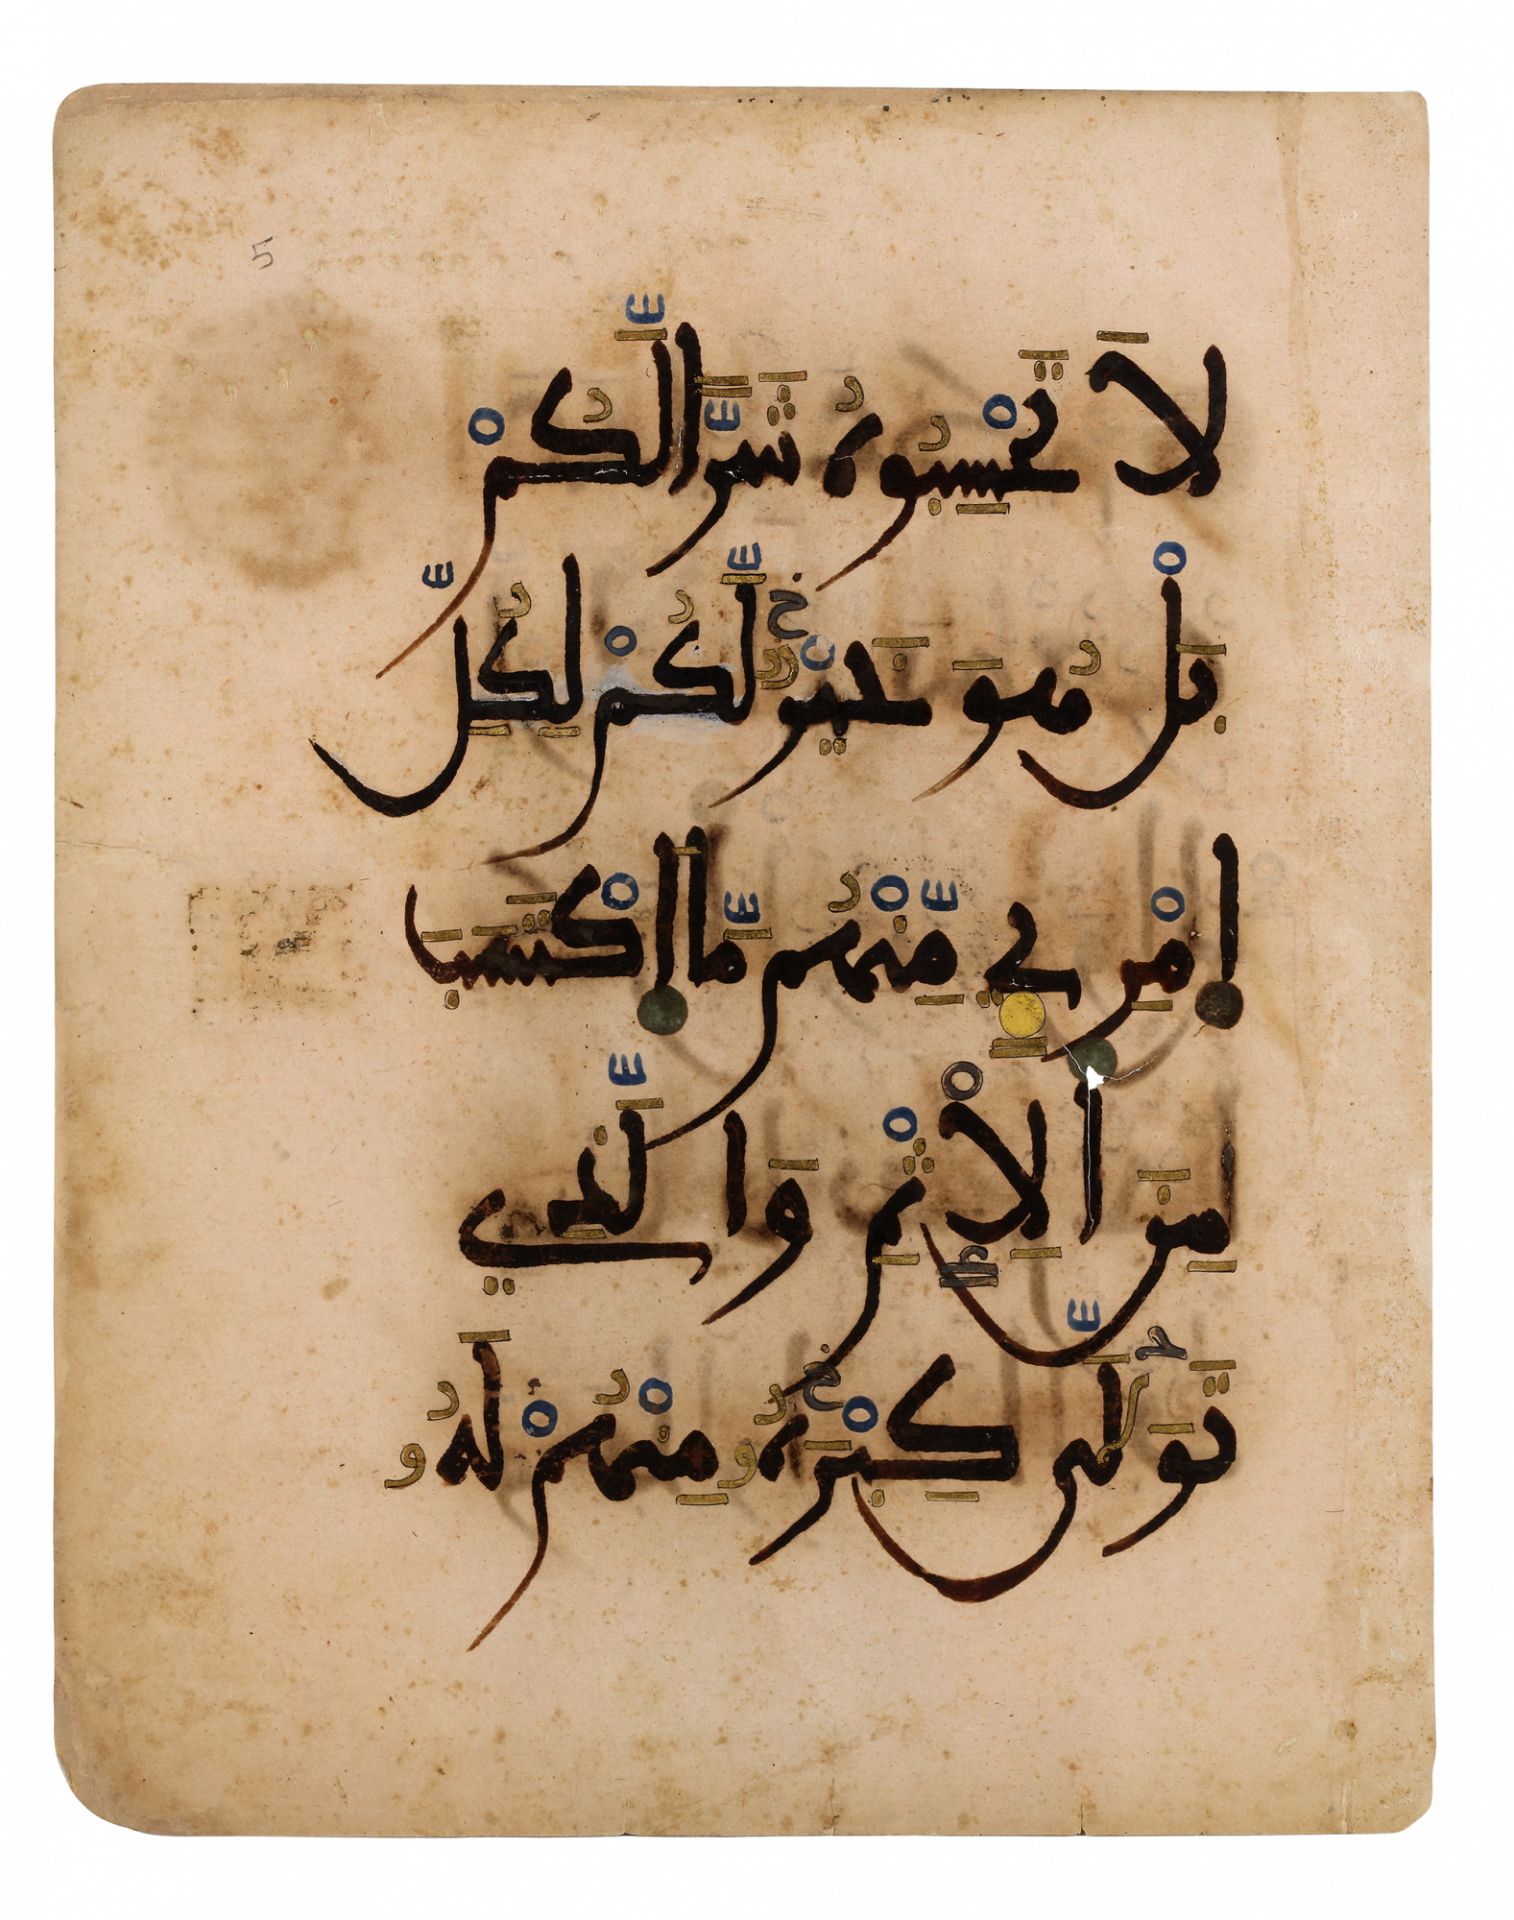 5
لَا تَحْسِبُوهُ شَرّٗا لَّكُمْ
بَلْ هُوَ خَيْرٞ لَّكُمْ لِكُلِّ
اِمْرِيٕٖ مِّنْهُم مَّا اَكْتَسَبَ
مِنَ اَلِاثْمِ وَالَّذِي
تَوَلّٰى كِبْرَهُۥ مِنْهُمْ لَهُۥ